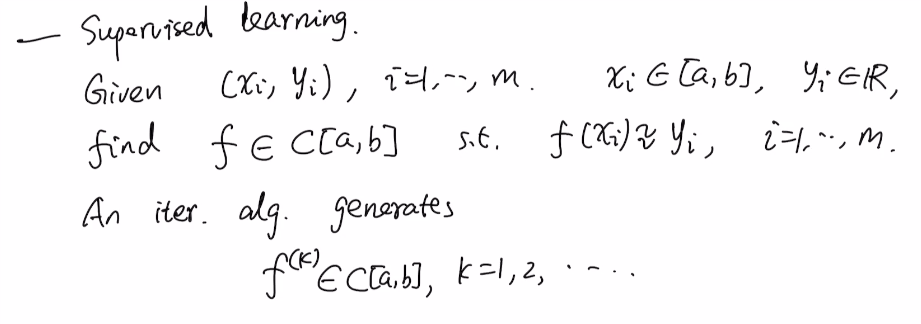 — Supervised learning.
Given (xi, yi), i=1,--, m. xi ∈ [a,b], yi ∈ ℝ,
find f ∈ C[a,b] s.t. f(xi) ≈ yi, i=1,--, m.
An iter. alg. generates
f^(k) ∈ C[a,b], k=1,2, ----.